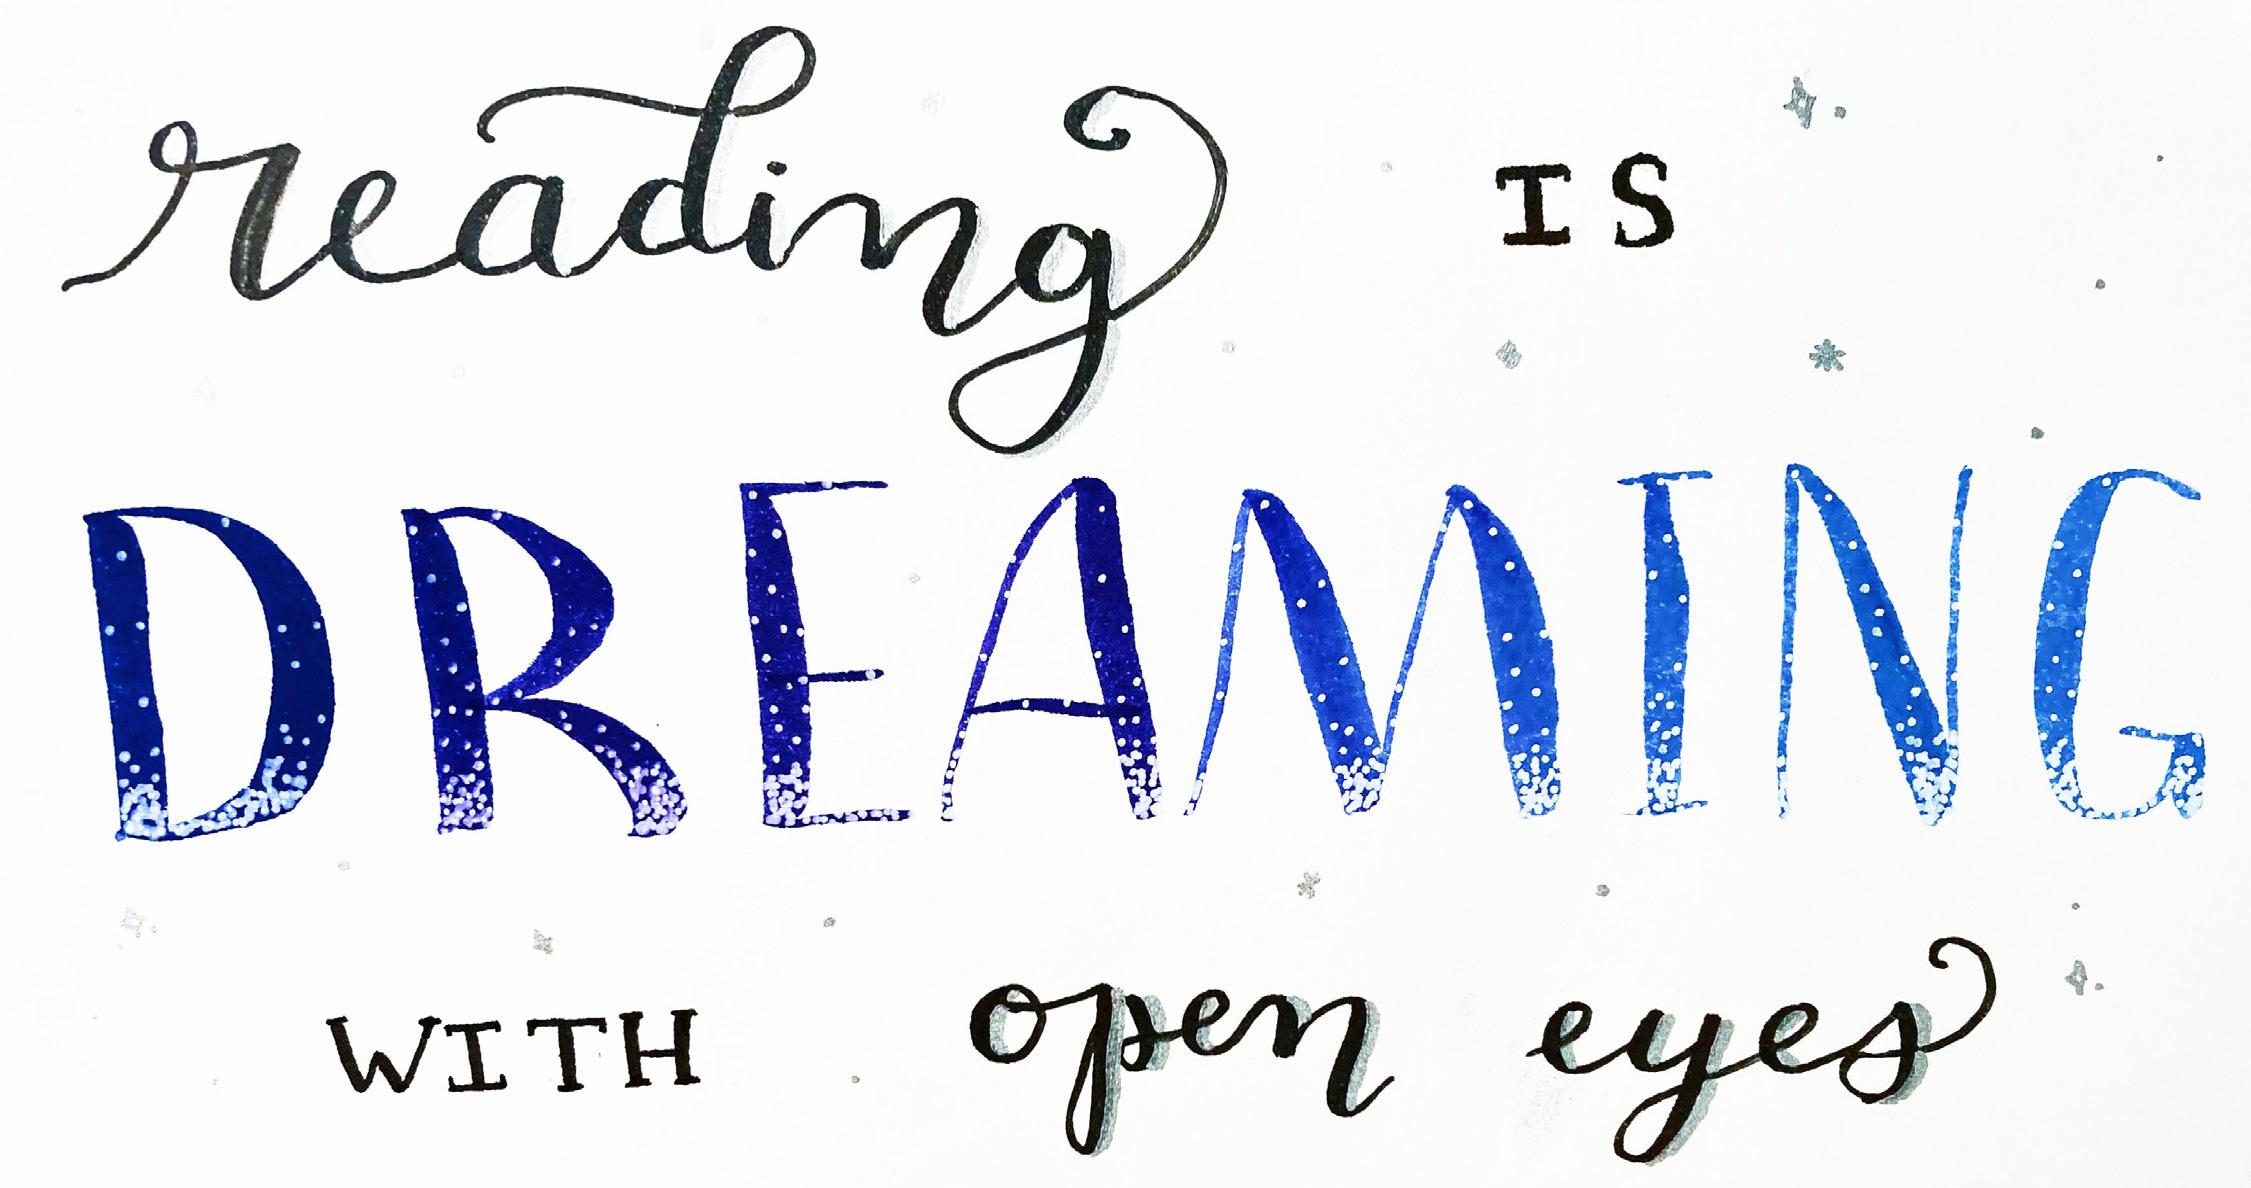 reading IS
DREAMING
WITH open eyes